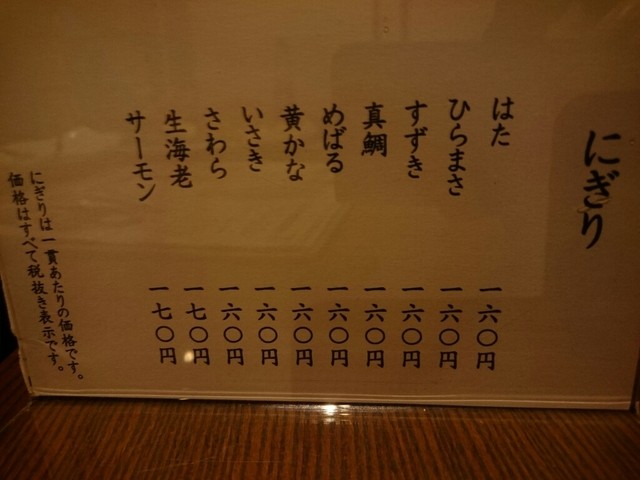 にぎり
はた 一六〇円
ひらまさ 一六〇円
すずき 一六〇円
真鯛 一六〇円
めばる 一六〇円
黄かな 一六〇円
いさき 一六〇円
さわら 一六〇円
生海老 一七〇円
サーモン 一七〇円
にぎりは一貫あたりの価格です。
価格はすべて税抜き表示です。